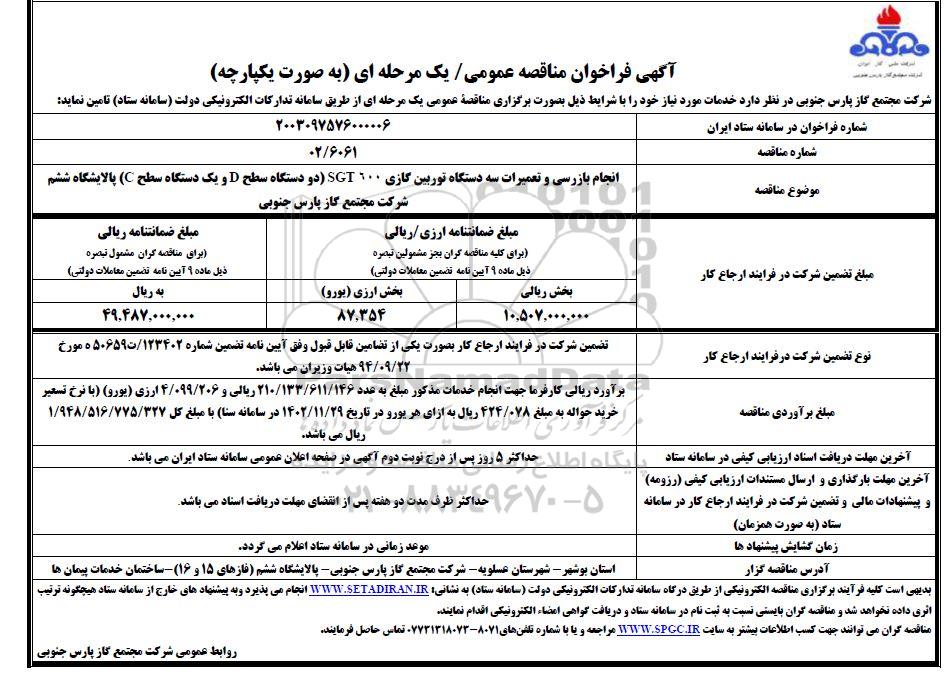 شرکت ملی گاز ایران
شرکت مجتمع گاز پارس جنوبی
آگهی فراخوان مناقصه عمومی/ یک مرحله ای (به صورت یکپارچه)
شرکت مجتمع گاز پارس جنوبی در نظر دارد خدمات مورد نیاز خود را با شرایط ذیل بصورت برگزاری مناقصهٔ عمومی یک مرحله ای از طریق سامانه تدارکات الکترونیکی دولت (سامانه ستاد) تامین نماید:
شماره فراخوان در سامانه ستاد ایران
۲۰۰۳۰۹۷۵۷۶۰۰۰۰۰۶
شماره مناقصه
۰۲/۶۰۶۱
موضوع مناقصه
انجام بازرسی و تعمیرات سه دستگاه توربین گازی SGT ٦٠٠ (دو دستگاه سطح D و یک دستگاه سطح C) پالایشگاه ششم
شرکت مجتمع گاز پارس جنوبی
مبلغ تضمین شرکت در فرایند ارجاع کار
مبلغ ضمانتنامه ارزی/ریالی
(برای کلیه مناقصه گران بجز مشمولین تبصره
ذیل ماده ۹ آیین نامه تضمین معاملات دولتی)
مبلغ ضمانتنامه ریالی
(برای مناقصه گران مشمول تبصره
ذیل ماده ۹ آیین نامه تضمین معاملات دولتی)
بخش ریالی
بخش ارزی (یورو)
به ریال
۱۰,۵۰۷,۰۰۰,۰۰۰
۸۷,۳۵۴
۴۹,۴۸۷,۰۰۰,۰۰۰
نوع تضمین شرکت درفرایند ارجاع کار
تضمین شرکت در فرایند ارجاع کار بصورت یکی از تضامین قابل قبول وفق آیین نامه تضمین شماره ۱۲۳۴۰۲/ت۵۰۶۵۹ ه مورخ
۹۴/۰۹/۲۲ هیات وزیران می باشد.
مبلغ برآوردی مناقصه
برآورد ریالی کارفرما جهت انجام خدمات مذکور مبلغ به عدد ۲۱۰/۱۳۳/۶۱۱/۱۴۶ ریالی و ۴/۰۹۹/۲۰۶ ارزی (یورو) (با نرخ تسعیر
خرید حواله به مبلغ ۴۲۴/۰۷۸ ریال به ازای هر یورو در تاریخ ۱۴۰۲/۱۱/۲۹ در سامانه سنا) با مبلغ کل ۱/۹۴۸/۵۱۶/۷۷۵/۳۲۷
ریال می باشد.
آخرین مهلت دریافت اسناد ارزیابی کیفی در سامانه ستاد
حداکثر ۵ روز پس از درج نوبت دوم آگهی در صفحه اعلان عمومی سامانه ستاد ایران می باشد.
آخرین مهلت بارگذاری و ارسال مستندات ارزیابی کیفی (رزومه)
و پیشنهادات مالی و تضمین شرکت در فرایند ارجاع کار در سامانه
ستاد (به صورت همزمان)
حداکثر ظرف مدت دو هفته پس از انقضای مهلت دریافت اسناد می باشد.
زمان گشایش پیشنهاد ها
موعد زمانی در سامانه ستاد اعلام می گردد.
آدرس مناقصه گزار
استان بوشهر – شهرستان عسلویه – شرکت مجتمع گاز پارس جنوبی – پالایشگاه ششم (فازهای ۱۵ و ۱۶) – ساختمان خدمات پیمان ها
بدیهی است کلیه فرآیند برگزاری مناقصه الکترونیکی از طریق درگاه سامانه تدارکات الکترونیکی دولت (سامانه ستاد) به نشانی: WWW.SETADIRAN.IR انجام می پذیرد وبه پیشنهاد های خارج از سامانه ستاد هیچگونه ترتیب
اثری داده نخواهد شد و مناقصه گران بایستی نسبت به ثبت نام در سامانه ستاد و دریافت گواهی امضاء الکترونیکی اقدام نمایند.
مناقصه گران می توانند جهت کسب اطلاعات بیشتر به سایت WWW.SPGC.IR مراجعه و یا با شماره تلفن‌های ۸۰۷۱–۰۷۷۳۱۳۱۸۰۷۳ تماس حاصل فرمایند.
روابط عمومی شرکت مجتمع گاز پارس جنوبی
ParsNamadData
۰۲۱–۸۸۳۴۹۶۷۰–۵